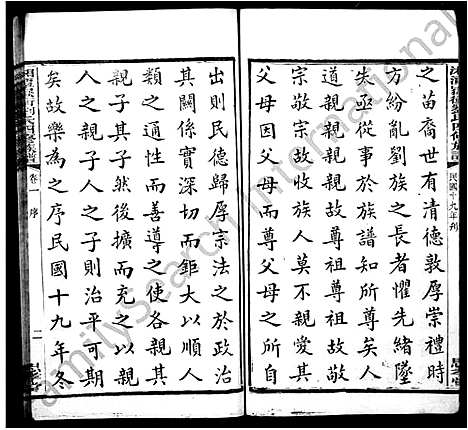 之苗裔世有清德敦厚崇禮時
方紛亂劉族之長者懼先緒墜
失亟從事於族譜知所尊矣人
道親親親親故尊祖尊祖故敬
宗敬宗故收族人莫不親愛其
父母因而尊父母之所自
民國十九年刊
出則民德歸厚宗法之於政治
其關係實深切而鉅大以順人
類之通性而善導之使各親其
親子其子然後擴而充之以親
人之親子人之子則治平可期
矣故樂為之序民國十九年冬
卷一
序
二
FamilySearch International